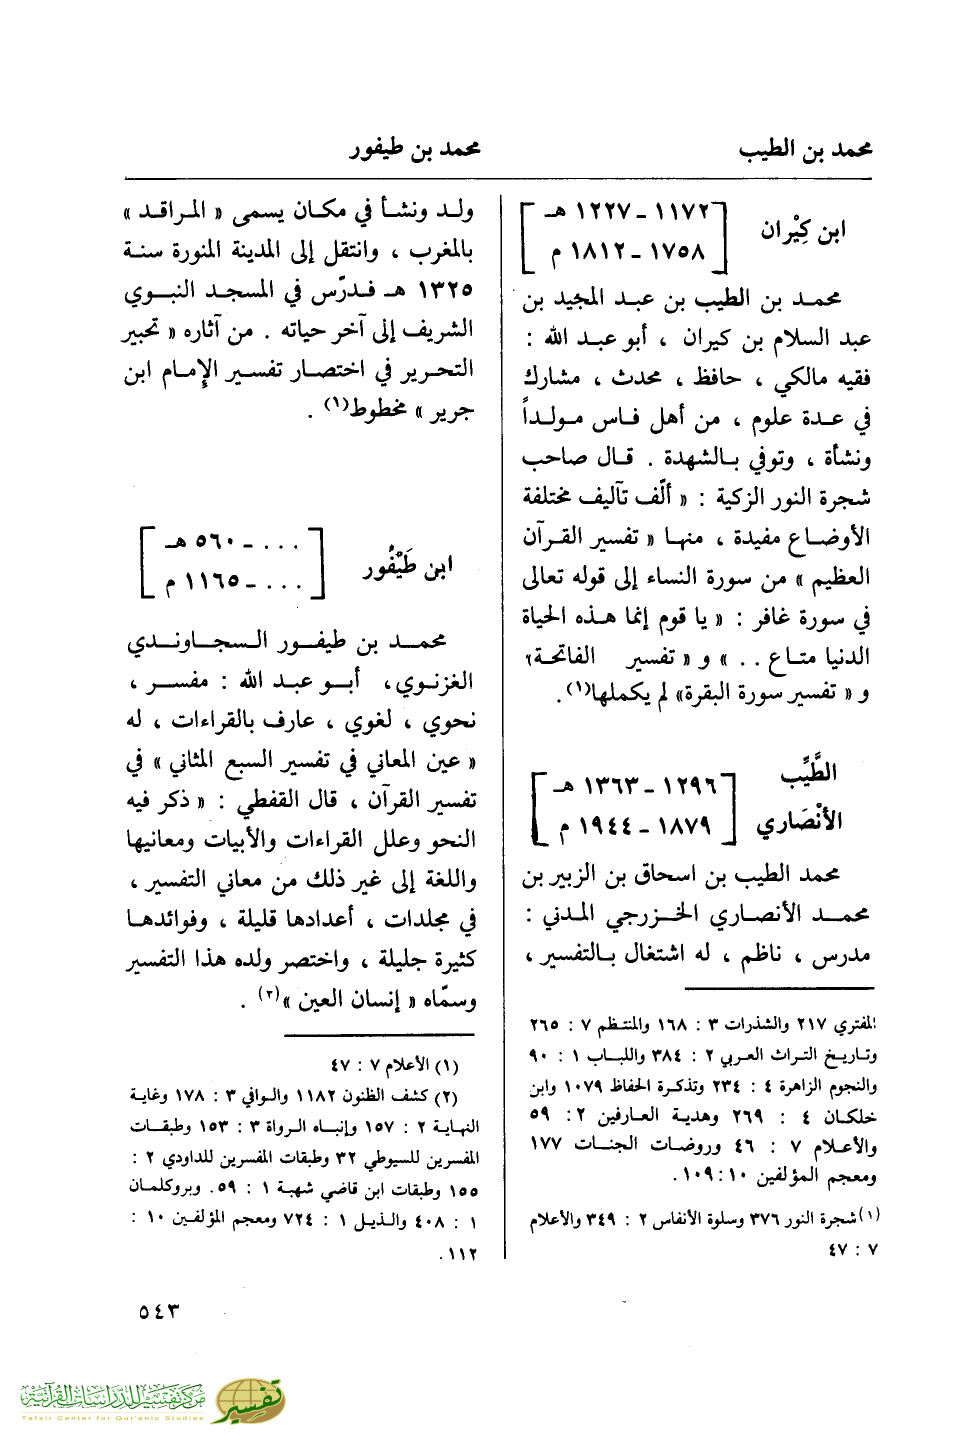 محمد بن الطيب
محمد بن طيفور
ابن كِيْران
١١٧٢ - ١٢٢٧ هـ
١٧٥٨ - ١٨١٢ م
محمد بن الطيب بن عبد المجيد بن
عبد السلام بن كيران ، أبو عبد الله :
فقيه مالكي ، حافظ ، محدث ، مشارك
في عدة علوم ، من أهل فاس مولداً
ونشأة ، وتوفي بالشهدة . قال صاحب
شجرة النور الزكية : « ألّف تآليف مختلفة
الأوضاع مفيدة ، منها « تفسير القرآن
العظيم » من سورة النساء إلى قوله تعالى
في سورة غافر : « يا قوم إنما هذه الحياة
الدنيا متاع . . » و « تفسير الفاتحة»
و « تفسير سورة البقرة» لم يكملها(١).
الطَّيِّب
الأنْصَاري
١٢٩٦ - ١٣٦٣ هـ
١٨٧٩ - ١٩٤٤ م
محمد الطيب بن اسحاق بن الزبير بن
محمد الأنصاري الخزرجي المدني :
مدرس ، ناظم ، له اشتغال بالتفسير ،
المفتري ٢١٧ والشذرات ٣ : ١٦٨ والمنتظم ٧ : ٢٦٥
وتاريخ التراث العربي ٢ : ٣٨٤ واللباب ١ : ٩٠
والنجوم الزاهرة ٤ : ٢٣٤ وتذكرة الحفاظ ١٠٧٩ وابن
خلكان ٤ : ٢٦٩ وهدية العارفين ٢ : ٥٩
والأعلام ٧ : ٤٦ وروضات الجنات ١٧٧
ومعجم المؤلفين ١٠ : ١٠٩.
(١) شجرة النور ٣٧٦ وسلوة الأنفاس ٢ : ٣٤٩ والأعلام
٧ : ٤٧
ولد ونشأ في مكان يسمى « المراقد »
بالمغرب ، وانتقل إلى المدينة المنورة سنة
١٣٢٥ هـ فدرّس في المسجد النبوي
الشريف إلى آخر حياته . من آثاره « تحبير
التحرير في اختصار تفسير الإمام ابن
جرير » مخطوط(١) .
ابن طَيْفُور
. . . - ٥٦٠ هـ
. . . - ١١٦٥ م
محمد بن طيفور السجاوندي
الغزنوي، أبو عبد الله : مفسر ،
نحوي ، لغوي ، عارف بالقراءات ، له
« عين المعاني في تفسير السبع المثاني » في
تفسير القرآن ، قال القفطي : « ذكر فيه
النحو وعلل القراءات والأبيات ومعانيها
واللغة إلى غير ذلك من معاني التفسير ،
في مجلدات ، أعدادها قليلة ، وفوائدها
كثيرة جليلة ، واختصر ولده هذا التفسير
وسمّاه « إنسان العين »(٢) .
(١) الأعلام ٧ : ٤٧
(٢) كشف الظنون ١١٨٢ والوافي ٣ : ١٧٨ وغاية
النهاية ٢ : ١٥٧ وإنباه الرواة ٣ : ١٥٣ وطبقات
المفسرين للسيوطي ٣٢ وطبقات المفسرين للداودي ٢ :
١٥٥ وطبقات ابن قاضي شهبة ١ : ٥٩. وبروكلمان
١ : ٤٠٨ والذيل ١ : ٧٢٤ ومعجم المؤلفين ١٠ :
١١٢.
٥٤٣
مركز تفسير للدراسات القرآنية
Tafsir Center for Qur'anic Studies
تفسير